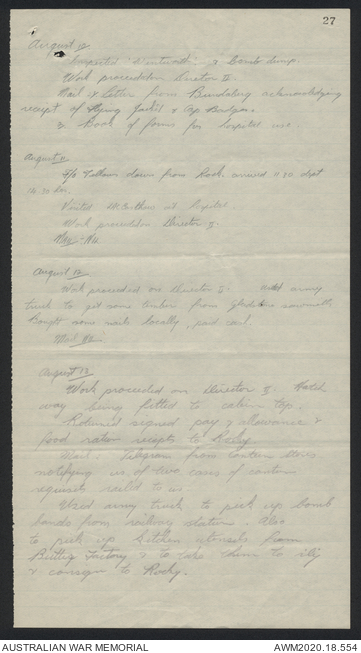 27
August
Inspected & bomb dump.
Work proceeded on Director II.
Mail & letter from Bundaberg acknowledging
receipt of flying jacket & Cap Badges.
& Book of forms for hospital use
August 11
F/O down from Rock. arrived 11 20. dept
Visited at Hospital
Work proceeded on Director II.
Mail - Nil
August 12
Work proceeded on Director II. army
truck to get some timber from Gladstone sawmills
Bought some nails locally, paid cash.
Mail Nil
August 13
Work proceeded on Director II. Hatch
way being fitted to cabin top.
Returned signed pay & allowance &
food ration receipts to Rocky.
Mail. Telegram from
notifying us of two cases of canteen
requisites railed to us
Used army truck to pick up bomb
from railway station. Also
to pick up kitchen utensils from
Butter Factory & to take them to
& consign to Rocky.
AUSTRALIAN WAR MEMORIAL
AWM2020.18.554